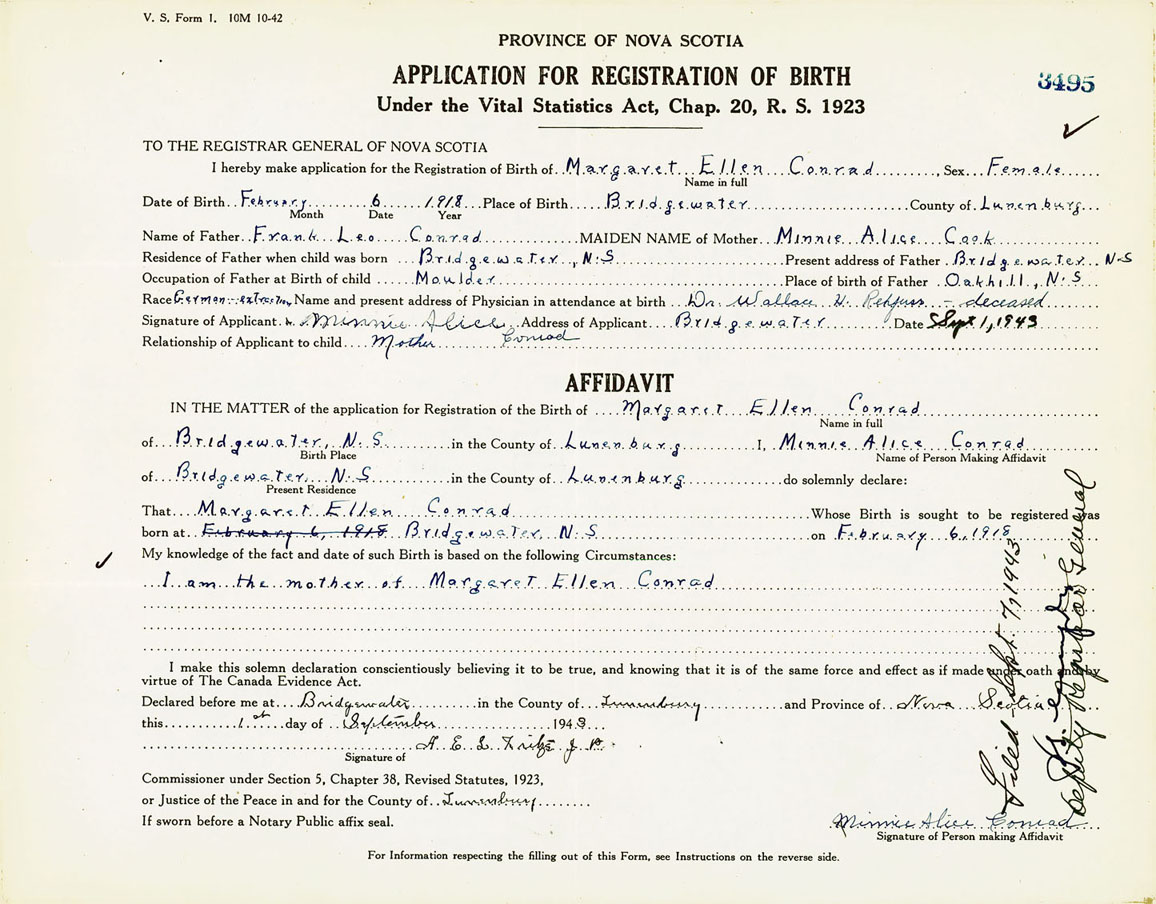 V. S. Form 1. 10M 10-42
PROVINCE OF NOVA SCOTIA
APPLICATION FOR REGISTRATION OF BIRTH
3495
Under the Vital Statistics Act, Chap. 20, R. S. 1923
TO THE REGISTRAR GENERAL OF NOVA SCOTIA
I hereby make application for the Registration of Birth of Margaret Ellen Conrad, Sex Female
Name in full
Date of Birth February 6 1918 Place of Birth Bridgewater County of Lunenburg
Month Date Year
Name of Father Frank Leo Conrad MAIDEN NAME of Mother Minnie Alice Cook
Residence of Father when child was born Bridgewater, N.S Present address of Father Bridgewater N.S
Occupation of Father at Birth of child Moulder Place of birth of Father Oakhill, N.S
Race German Name and present address of Physician in attendance at birth Dr. Wallace - deceased
Signature of Applicant Minnie Alice Address of Applicant Bridgewater Date Sept 1, 1943
Relationship of Applicant to child Mother Conrad
AFFIDAVIT
IN THE MATTER of the application for Registration of the Birth of Margaret Ellen Conrad
Name in full
of Bridgewater, N.S in the County of Lunenburg I, Minnie Alice Conrad
Birth Place Name of Person Making Affidavit
of Bridgewater N.S in the County of Lunenburg do solemnly declare:
Present Residence
That Margaret Ellen Conrad Whose Birth is sought to be registered was
born at February 6, 1918 Bridgewater, N.S on February 6, 1918
My knowledge of the fact and date of such Birth is based on the following Circumstances:
I am the mother of Margaret Ellen Conrad
I make this solemn declaration conscientiously believing it to be true, and knowing that it is of the same force and effect as if made under oath and by
virtue of The Canada Evidence Act.
Declared before me at Bridgewater in the County of Lunenburg and Province of Nova Scotia
this 1st day of September 1943
A. E. L. J. P.
Signature of
Commissioner under Section 5, Chapter 38, Revised Statutes, 1923,
or Justice of the Peace in and for the County of Lunenburg
If sworn before a Notary Public affix seal.
Minnie Alice Conrad
Signature of Person making Affidavit
For Information respecting the filling out of this Form, see Instructions on the reverse side.
Filed Sept. 7, 1943
Deputy Registrar General